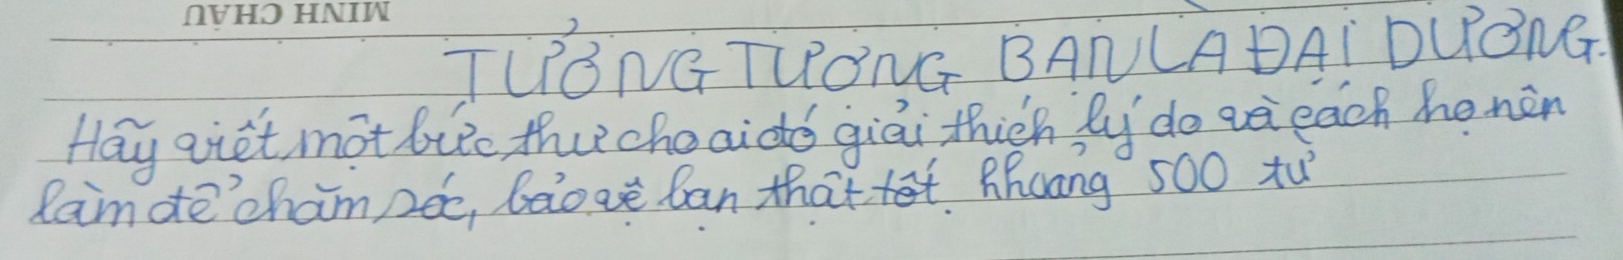 MINH CHÂU
TƯỞNG TƯỢNG BẠN LÀ ĐẠI DƯƠNG.
Hãy viết một bức thư cho ai đó giải thích lý do và cách họ nên
làm để chăm sóc, bảo vệ bạn thật tốt. Khoảng 500 từ